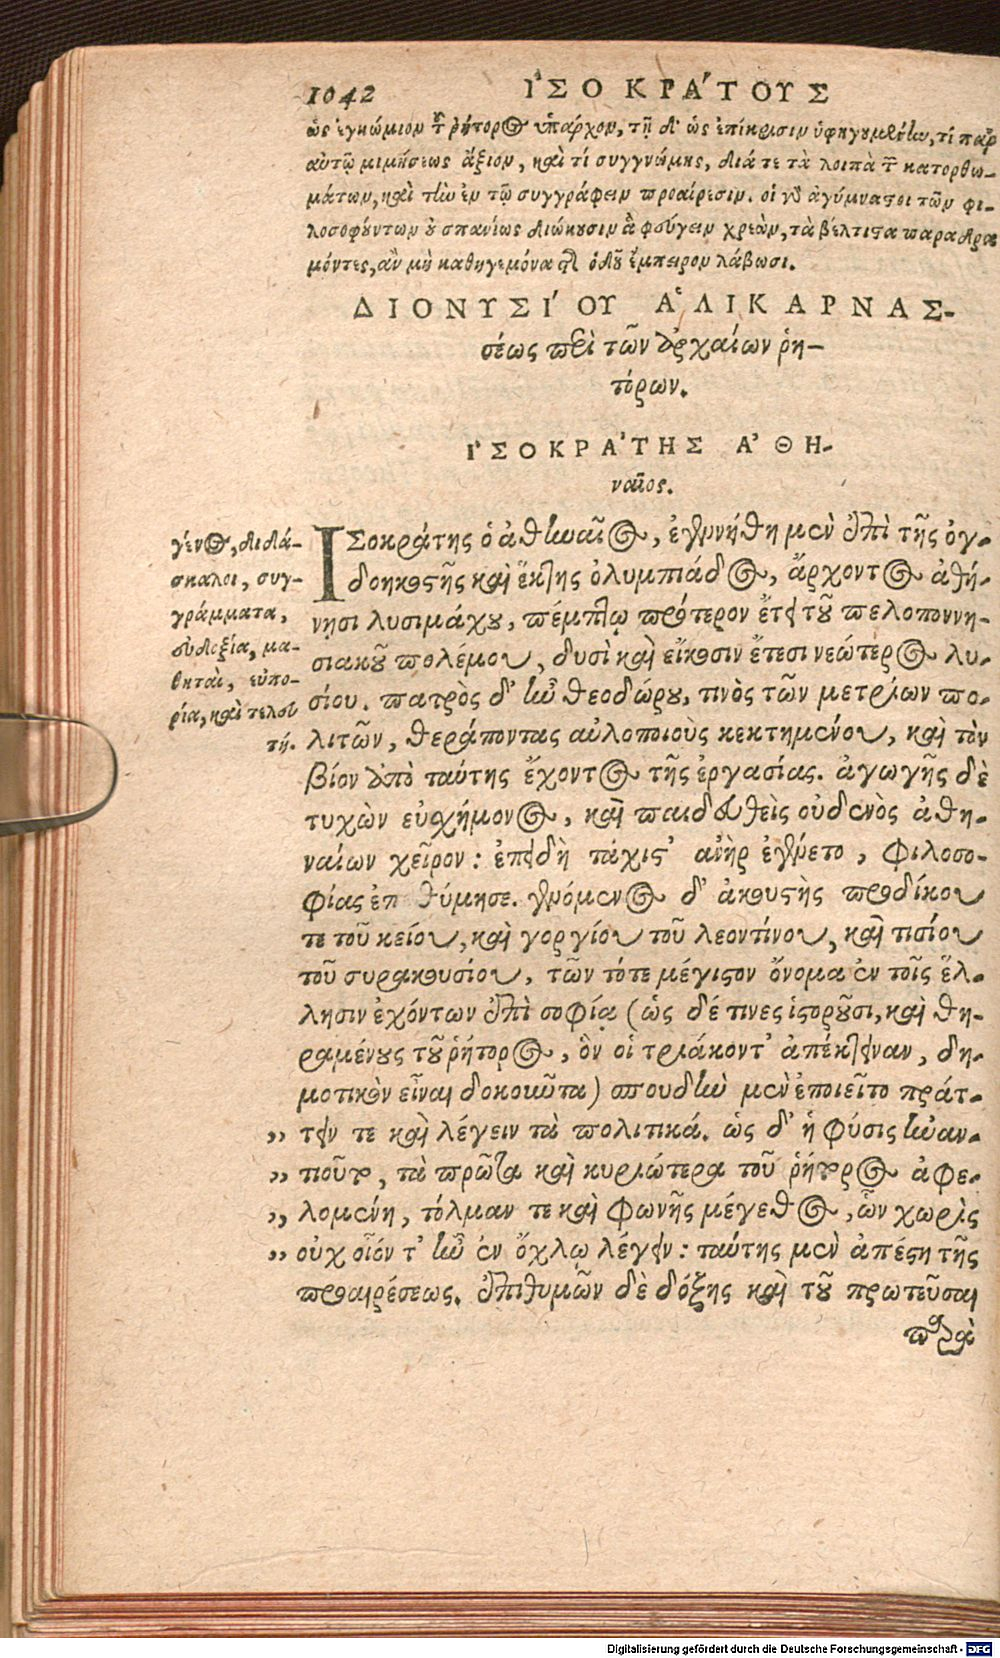 1042 ἸΣΟΚΡΆΤΟΥΣ
ὡς ἐγκώμιον τοῦ ῥήτορος ὑπάρχον, τῇ δ' ὡς ἐπίκρισιν ὑφηγουμένην, τί παρ'
αὐτῷ μιμήσεως ἄξιον, καὶ τί συγγνώμης, διά τε τὰ λοιπὰ τῶν κατορθω-
μάτων, καὶ τὴν ἐν τῷ συγγράφειν προαίρεσιν. οἱ γὰρ ἀγύμναστοι τῶν φι-
λοσοφούντων οὐ σπανίως διώκουσιν ἃ φεύγειν χρεὼν, τὰ βέλτιστα παραδρα
μόντες, ἂν μὴ καθηγεμόνα τῆς ὁδοῦ ἔμπειρον λάβωσι.
ΔΙΟΝΥΣΊΟΥ ἈΛΙΚΑΡΝΑΣ-
σέως περὶ τῶν ἀρχαίων ῥη-
τόρων.
ἸΣΟΚΡΆΤΗΣ ἈΘΗ-
ναῖος.
γένος, διδά-
σκαλοι, συγ-
γράμματα,
εὐδοξία, μα-
θηταὶ, εὐπο-
ρία, καὶ τελευ
τή.
ἸΣοκράτης ὁ ἀθηναῖος, ἐγεννήθη μὲν ἐπὶ τῆς ὀγ-
δοηκοστῆς καὶ ἕκτης ὀλυμπιάδος, ἄρχοντος ἀθή-
νησι λυσιμάχου, πέμπτῳ πρότερον ἔτει τοῦ πελοποννη-
σιακοῦ πολέμου, δυσὶ καὶ εἴκοσιν ἔτεσι νεώτερος λυ-
σίου. πατρὸς δ' ἦν θεοδώρου, τινὸς τῶν μετρίων πο-
λιτῶν, θεράποντας αὐλοποιοὺς κεκτημένου, καὶ τὸν
βίον ἀπὸ ταύτης ἔχοντος τῆς ἐργασίας. ἀγωγῆς δὲ
τυχὼν εὐσχήμονος, καὶ παιδευθεὶς οὐδενὸς ἀθη-
ναίων χεῖρον: ἐπειδὴ τάχιστ' ἀνὴρ ἐγένετο, φιλοσο-
φίας ἐπ θύμησε. γενόμενος δ' ἀκουστὴς προδίκου
τε τοῦ κείου, καὶ γοργίου τοῦ λεοντίνου, καὶ τισίου
τοῦ συρακουσίου, τῶν τότε μέγιστον ὄνομα ἐν τοῖς ἕλ-
λησιν ἐχόντων ἐπὶ σοφίᾳ (ὡς δέ τινες ἱστοροῦσι, καὶ θη-
ραμένους τοῦ ῥήτορος, ὃν οἱ τριάκοντ' ἀπέκτειναν, δη-
μοτικὸν εἶναι δοκοῦντα) σπουδὴν μὲν ἐποιεῖτο πράτ-
„ τειν τε καὶ λέγειν τὰ πολιτικά. ὡς δ' ἡ φύσις ἠναν-
„ τιοῦτο, τὰ πρῶτα καὶ κυριώτερα τοῦ ῥήτορος ἀφε-
„ λομένη, τόλμαν τε καὶ φωνῆς μέγεθος, ὧν χωρὶς
„ οὐχ οἷόν τ' ἦν ἐν ὄχλῳ λέγειν: ταύτης μὲν ἀπέστη τῆς
προαιρέσεως. ἐπιθυμῶν δὲ δόξης καὶ τοῦ πρωτεῦσαι
παρὰ
Digitalisierung gefördert durch die Deutsche Forschungsgemeinschaft - DFG